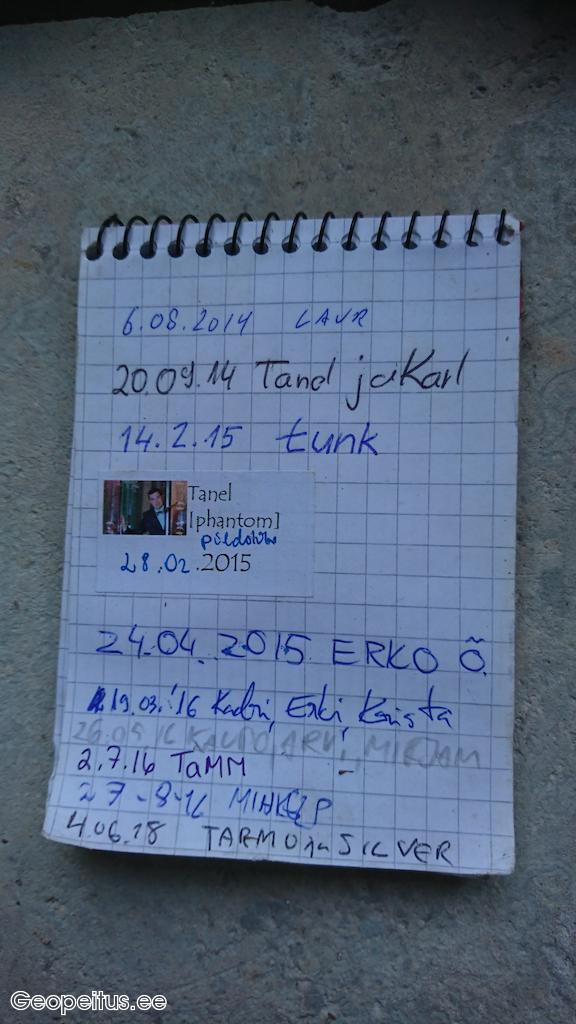 6.08.2014 LAUR
20.09.14 Tanel ja Karl
14.2.15 tunk
Tanel
[phantom]
28.02.2015
24.04.2015. ERKO Õ.
19.03.'16 Kadri, Erki, Krista
KAUPO, ARVI, MIRJAM
2.7.16 TaMM
27-8-16
4.06.18 TARMO ja SILVER
Geopeitus.ee